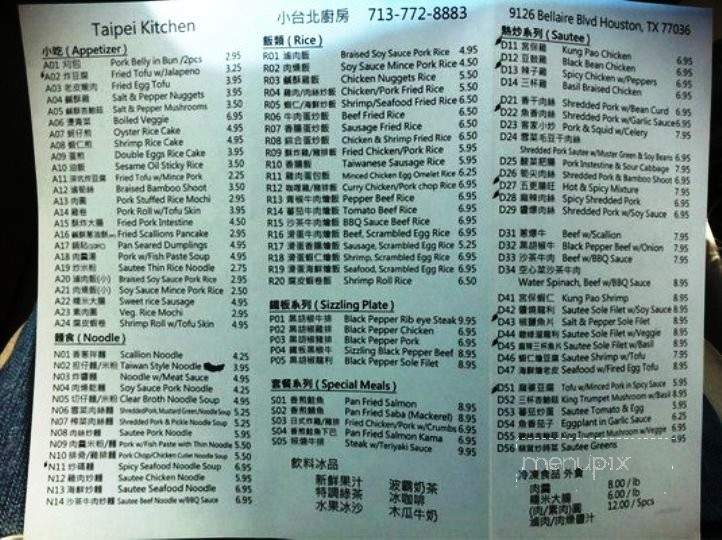 Taipei Kitchen
小台北廚房 713-772-8883
9126 Bellaire Blvd Houston, TX 77036
小吃 ( Appetizer )
A01 刈包 Pork Belly in Bun /2pcs 2.95
A02 炸豆腐 Fried Tofu w/Jalapeno 3.95
A03 Fried Egg Tofu 3.95
A04 鹹酥雞 Salt & Pepper Nuggets 3.50
A05 Salt & Pepper Mushrooms 3.50
A06 燙青菜 Boiled Veggie 6.95
A07 蚵仔煎 Oyster Rice Cake 4.95
A08 蝦仁煎 Shrimp Rice Cake 4.95
A09 蛋煎 Double Eggs Rice Cake 3.95
A10 油飯 Sesame Oil Sticky Rice 3.50
A11 Fried Tofu w/Mince Pork 2.25
A12 滷筍絲 Braised Bamboo Shoot 3.50
A13 肉圓 Pork Stuffed Rice Mochi 2.95
A14 雞卷 Pork Roll w/Tofu Skin 3.95
A15 酥炸大腸 Fried Pork Intestine 4.50
A16 Fried Scallions Pancake 2.95
A17 鍋貼(10PC) Pan Seared Dumplings 4.95
A18 肉羹湯 Pork w/Fish Paste Soup 4.95
A19 炒米粉 Sautee Thin Rice Noodle 2.75
A20 滷肉飯(小) Braised Soy Sauce Pork Rice 2.95
A21 肉燥飯(小) Soy Sauce Mince Pork Rice 2.50
A22 糯米大腸 Sweet rice Sausage 4.95
A23 素肉圓 Veg. Rice Mochi 2.95
A24 腐皮蝦卷 Shrimp Roll w/Tofu Skin 4.95
麵食 ( Noodle )
N01 香蔥拌麵 Scallion Noodle 4.25
N02 担仔麵/米粉 Taiwan Style Noodle 3.95
N03 炸醬麵 Noodle w/Meat Sauce 4.95
N04 肉燥乾麵 Soy Sauce Pork Noodle 4.25
N05 切仔麵/米粉 Clear Broth Noodle Soup 4.95
N06 雪菜肉絲麵 Shredded Pork, Mustard Green, Noodle Soup 5.25
N07 榨菜肉絲麵 Shredded Pork & Pickle Noodle Soup 5.25
N08 肉絲炒麵 Sautee Pork Noodle 5.95
N09 肉羹米粉/麵 Pork w/Fish Paste with Thin Noodle 5.50
N10 排骨/雞排麵 Pork Chop/Chicken Cutlet Noodle Soup 5.50
N11 炒碼麵 Spicy Seafood Noodle Soup 6.95
N12 雞肉炒麵 Sautee Chicken Noodle 5.95
N13 海鮮炒麵 Sautee Seafood Noodle 6.95
N14 沙茶牛肉炒麵 Sautee Beef Noodle w/BBQ Sauce 6.95
飯類 ( Rice )
R01 滷肉飯 Braised Soy Sauce Pork Rice 4.95
R02 肉燥飯 Soy Sauce Mince Pork Rice 4.50
R03 鹹酥雞飯 Chicken Nuggets Rice 5.50
R04 雞肉/肉絲炒飯 Chicken/Pork Fried Rice 5.50
R05 蝦仁/海鮮炒飯 Shrimp/Seafood Fried Rice 6.50
R06 牛肉蛋炒飯 Beef Fried Rice 6.50
R07 香腸蛋炒飯 Sausage Fried Rice 6.50
R08 綜合蛋炒飯 Chicken & Shrimp Fried Rice 6.50
R09 酥炸雞/豬排飯 Fried Chicken/Pork Rice 5.95
R10 香腸飯 Taiwanese Sausage Rice 5.95
R11 雞肉蛋包飯 Minced Chicken Egg Omelet Rice 6.25
R12 咖哩雞/豬排飯 Curry Chicken/Pork chop Rice 6.95
R13 青椒牛肉燴飯 Pepper Beef Rice 6.95
R14 蕃茄牛肉燴飯 Tomato Beef Rice 6.95
R15 沙茶牛肉燴飯 BBQ Sauce Beef Rice 6.95
R16 滑蛋牛肉燴飯 Beef, Scrambled Egg Rice 6.95
R17 滑蛋香腸燴飯 Sausage, Scrambled Egg Rice 5.25
R18 滑蛋蝦仁燴飯 Shrimp, Scrambled Egg Rice 6.95
R19 滑蛋海鮮燴飯 Seafood, Scrambled Egg Rice 6.95
R20 腐皮蝦卷飯 Shrimp Roll Rice 6.50
鐵板系列 ( Sizzling Plate )
P01 黑胡椒牛排 Black Pepper Rib eye Steak 9.95
P02 黑胡椒雞排 Black Pepper Chicken 6.95
P03 黑胡椒豬排 Black Pepper Pork 6.95
P04 鐵板黑椒牛 Sizzling Black Pepper Beef 8.95
P05 黑胡椒龍利 Black Pepper Sole Filet 8.95
套餐系列 ( Special Meals )
S01 香煎鮭魚 Pan Fried Salmon 8.95
S02 香煎鯖魚 Pan Fried Saba (Mackerel) 8.95
S03 日式炸雞/豬排 Fried Chicken/Pork w/Crumbs 6.95
S04 香煎鮭魚下巴 Pan Fried Salmon Kama 6.95
S05 照燒牛排 Steak w/Teriyaki Sauce 9.95
飲料冰品
新鮮果汁 波霸奶茶
特調綠茶 冰咖啡
水果冰沙 木瓜牛奶
熱炒系列 ( Sautee )
D11 宮保雞 Kung Pao Chicken 6.95
D12 豆豉雞 Black Bean Chicken 6.95
D13 辣子雞 Spicy Chicken w/Peppers 6.95
D14 三杯雞 Basil Braised Chicken 6.95
D21 香干肉絲 Shredded Pork w/Bean Curd 6.95
D22 魚香肉絲 Shredded Pork w/Garlic Sauce 6.95
D23 客家小炒 Pork & Squid w/Celery 7.95
D24 雪菜毛豆干肉絲
Shredded Pork Sautee w/Muster Green & Soy Beans 6.95
D25 酸菜肥腸 Pork Instestine & Sour Cabbage 7.95
D26 筍尖肉絲 Shredded Pork & Bamboo Shoot 6.95
D27 五更腸旺 Hot & Spicy Mixture 7.95
D28 麻辣肉絲 Spicy Shredded Pork 6.95
D29 醬爆肉絲 Shredded Pork w/Soy Sauce 6.95
D31 蔥爆牛 Beef w/Scallion 7.95
D32 黑胡椒牛 Black Pepper Beef w/Onion 7.95
D33 沙茶牛肉 Beef w/BBQ Sauce 7.95
D34 空心菜沙茶牛肉
Water Spinach, Beef w/BBQ Sauce 8.95
D41 宮保蝦仁 Kung Pao Shrimp 8.95
D42 醬爆龍利 Sautee Sole Filet w/Soy Sauce 8.95
D43 椒鹽魚片 Salt & Pepper Sole Filet 8.95
D44 Sautee Sole Filet w/Veggie 8.95
D45 Sautee Sole Filet w/Basil 8.95
D46 蝦仁燴豆腐 Sautee Shrimp w/Tofu 7.95
D47 海鮮豆腐煲 Seafood w/Fired Egg Tofu 8.95
D51 麻婆豆腐 Tofu w/Minced Pork in Spicy Sauce 5.95
D52 三杯杏鮑菇 King Trumpet Mushroom w/Basil 8.95
D53 蕃茄炒蛋 Sautee Tomato & Egg 5.95
D54 魚香茄子 Eggplant in Garlic Sauce 6.25
D55 King Trumpet Mushroom w/Veggie 8.95
D56 蝦醬炒時菜 Sautee Greens 6.95
menupix
冷凍食品 外賣
肉羹 8.00 / lb
糯米大腸 6.00 / lb
(肉/素肉)圓 12.00 / 5pcs
滷肉/肉燥醬汁